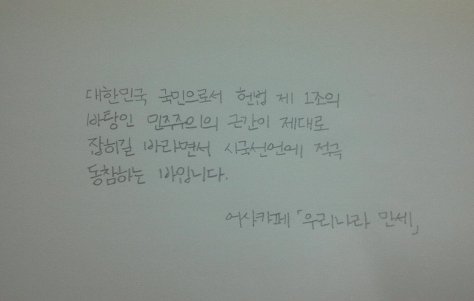 대한민국 국민으로서 헌법 제 1조의
바탕인 민주주의의 근간이 제대로
잡히길 바라면서 시국선언에 적극
동참하는 바입니다.
어샤카페 「우리나라 만세」